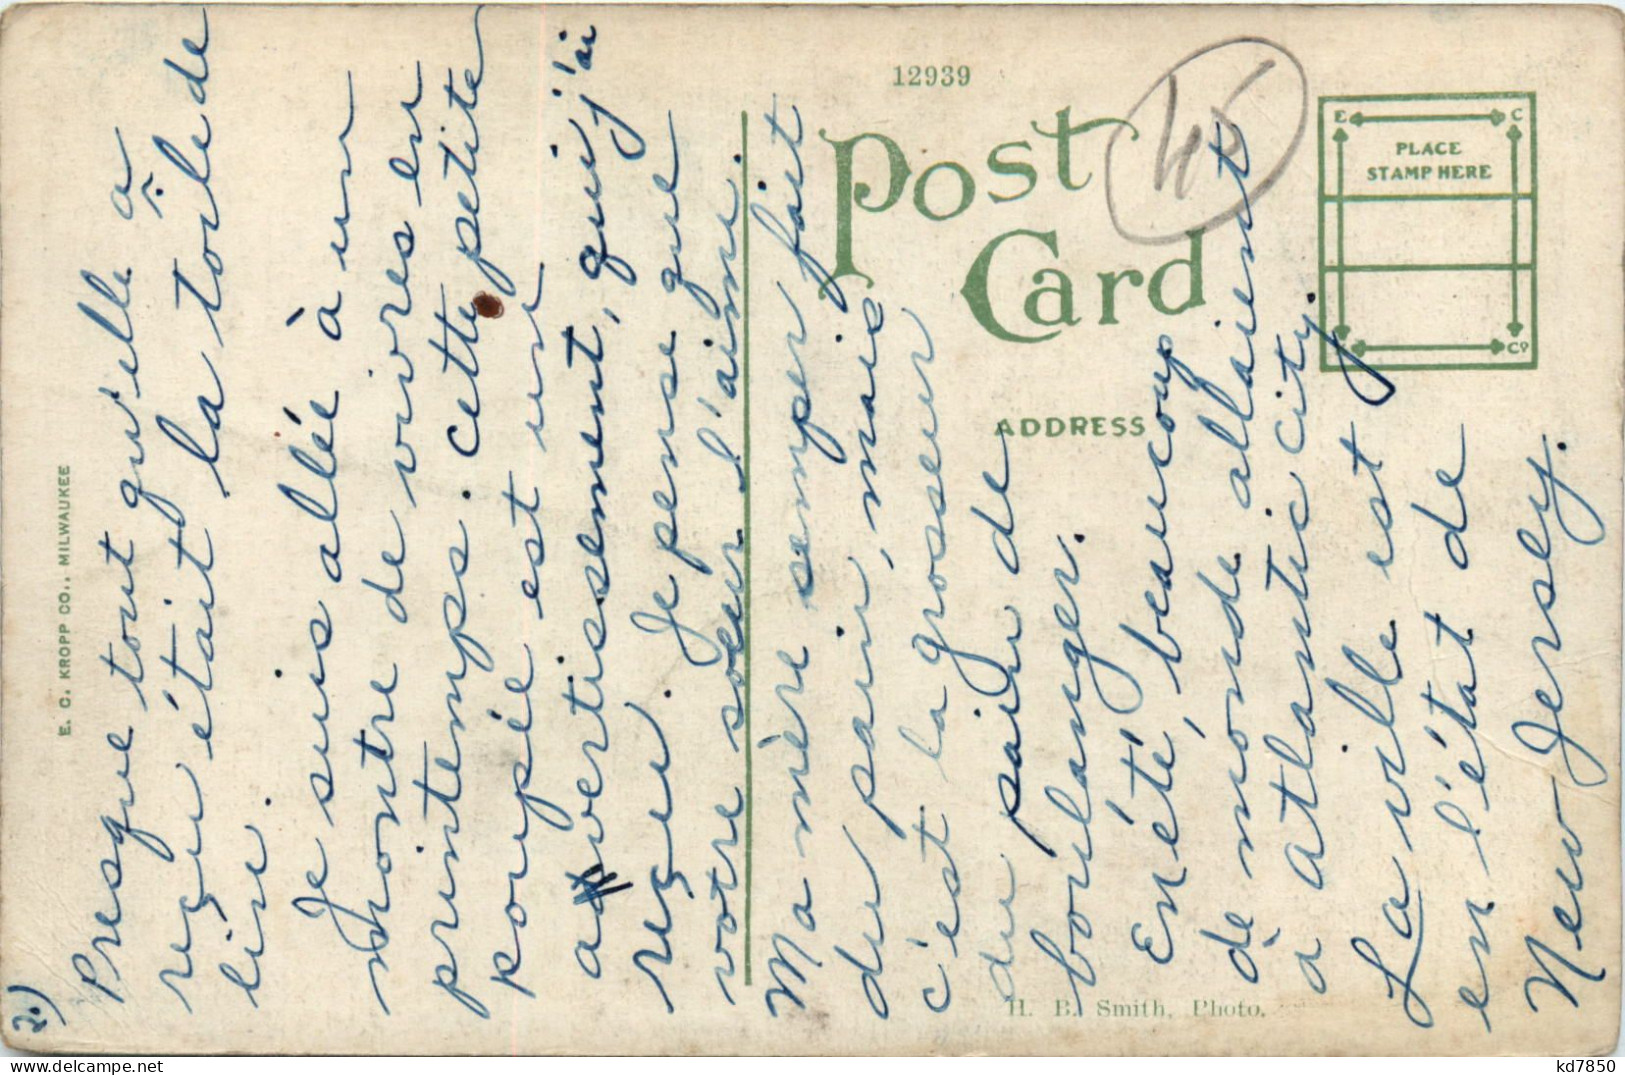 2.)
Presque tout qu'elle a
reçu était la toile de
line.
Je suis allée à un
montre de vivres en
printemps. Cette petite
poupée est un
avertissement, qui j'ai
reçu. Je pense que
votre soeur l'aime.
Ma mère semper fait
du pain, mais
c'est la grosseur
du pain de
boulanger.
En été, beaucoup
dè monde allaient
a Atlantic City.
La ville est
en l'état de
New Jersey.
12939
Post
Card
45
E C
PLACE
STAMP HERE
Co
ADDRESS
E. C. KROPP CO., MILWAUKEE
H. B. Smith, Photo.
kd7850